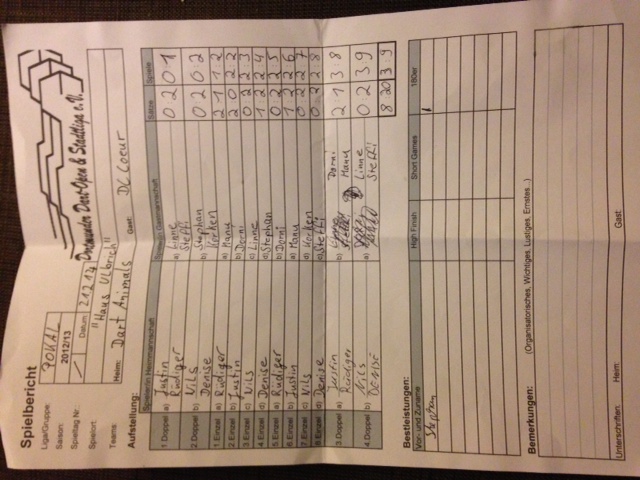 Spielbericht
Dortmunder Dart-Open & Stadtliga e.V.
Liga/Gruppe: POKAL
Saison: 2012/13
Spieltag Nr.: Datum:
Spielort: "Haus Ulbrich"
Teams: Heim: Dart Animals Gast: DC Coeur
Aufstellung:
Spieler/in Heimmannschaft Sätze Spiele
1.Doppel a) Justin a) Linne 0 2 0 1
Rüdiger Steffi
2.Doppel b) Nils b) Stephan 0 2 0 2
Denise Torken
1.Einzel a) Rüdiger a) Manu 2 1 1 2
2.Einzel b) Justin b) Dorni 2 0 2 2
3.Einzel c) Nils c) Linne 0 2 2 3
4.Einzel d) Denise d) Stephan 1 2 2 4
5.Einzel a) Rüdiger b) Dorni 0 2 2 5
6.Einzel b) Justin a) Manu 1 2 2 6
7.Einzel c) Nils d) 0 2 2 7
8.Einzel d) Denise c) Steffi 0 2 2 8
3.Doppel a) Justin b) Dorni 2 1 3 8
Rüdiger Manu
4.Doppel b) Nils a) Linne 0 2 3 9
Denise Steffi
8 20 3 9
Bestleistungen:
Vor- und Zuname High Finish Short Games 180er
Stephan I
Bemerkungen: (Organisatorisches, Wichtiges, Lustiges, Ernstes...)
Unterschriften: Heim: Gast: